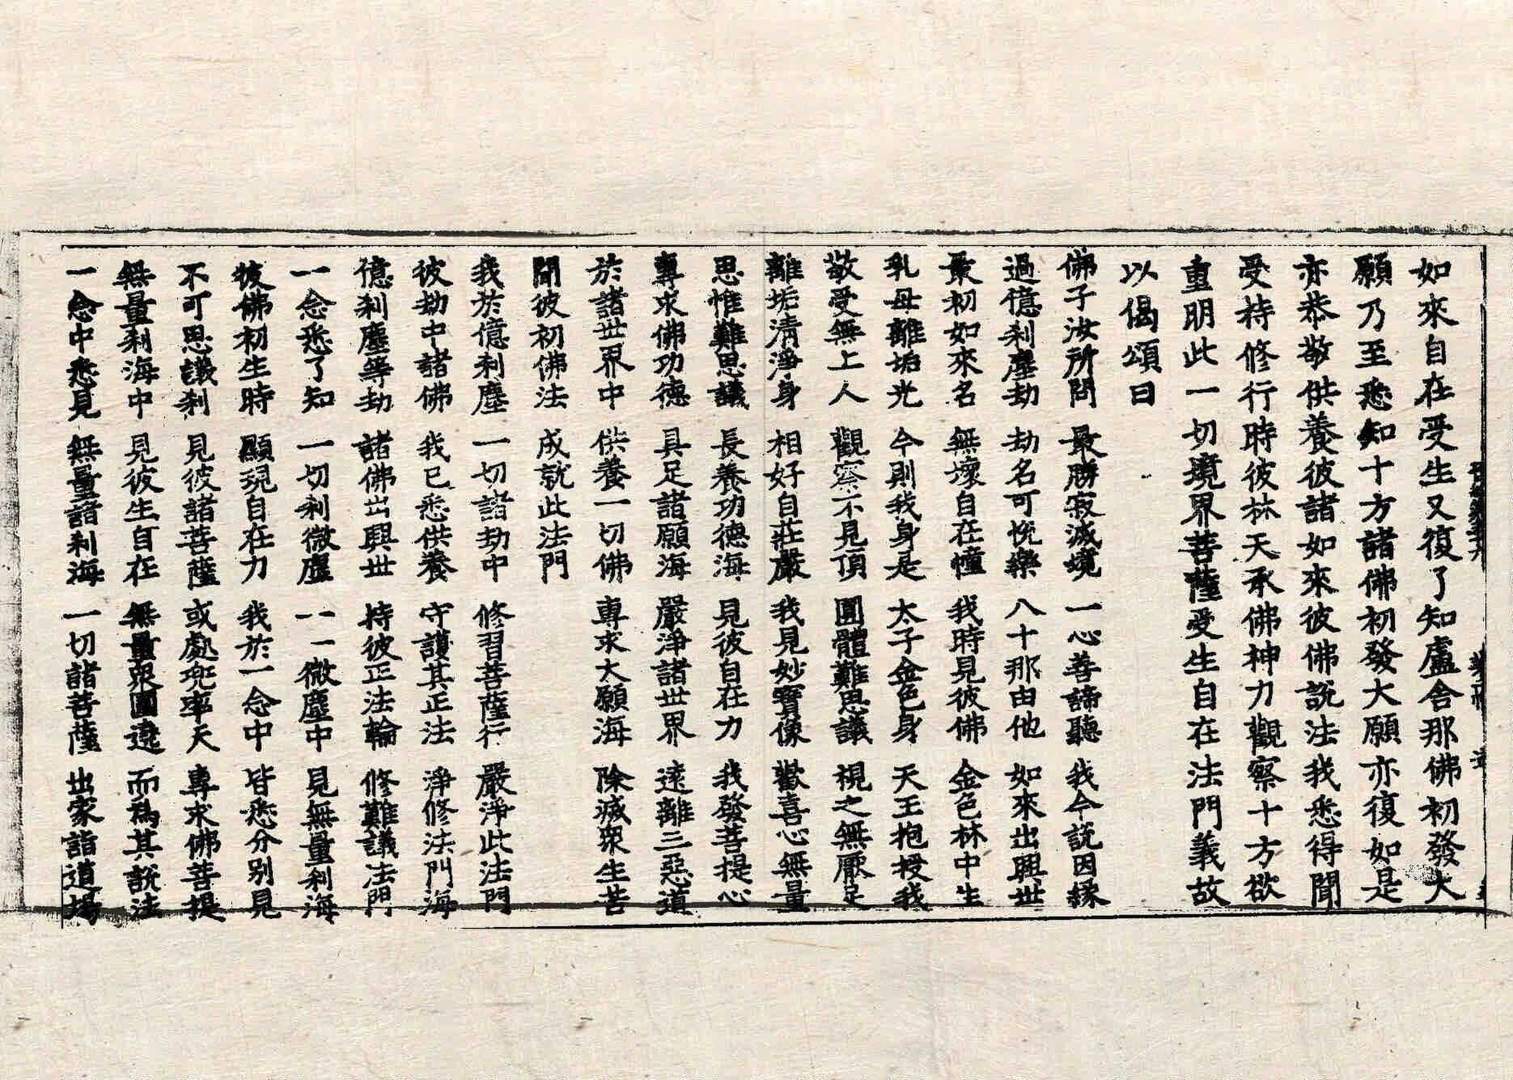 如來自在受生又復了知盧舍那佛初發大
願乃至悉知十方諸佛初發大願亦復如是
亦恭敬供養彼諸如來彼佛說法我悉得聞
受持修行時彼林天承佛神力觀察十方欲
重明此一切境界菩薩受生自在法門義故
以偈頌曰
佛子汝所問 最勝寂滅境 一心善諦聽 我今說因緣
過億刹塵劫 劫名可悅樂 八十那由他 如來出興世
最初如來名 無壞自在幢 我時見彼佛 金色林中生
乳母離垢光 今則我身是 太子金色身 天王抱授我
敬受無上人 觀察不見頂 圓體難思議 視之無厭足
離垢清淨身 相好自莊嚴 我見妙寶像 歡喜心無量
思惟難思議 長養功德海 見彼自在力 我發菩提心
專求佛功德 具足諸願海 嚴淨諸世界 遠離三惡道
於諸世界中 供養一切佛 專求大願海 除滅衆生苦
聞彼初佛法 成就此法門
我於億刹塵 一切諸劫中 修習菩薩行 嚴淨此法門
彼劫中諸佛 我已悉供養 守護其正法 淨修法門海
億刹塵等劫 諸佛出興世 持彼正法輪 修難議法門
一念悉了知 一切刹微塵 一一微塵中 見無量刹海
彼佛初生時 顯現自在力 我於一念中 皆悉分别見
不可思議刹 見彼諸菩薩 或處兜率天 專求佛菩提
無量刹海中 見彼生自在 無量衆圍遶 而爲其說法
一念中悉見 無量諸刹海 一切諸菩薩 出家詣道場